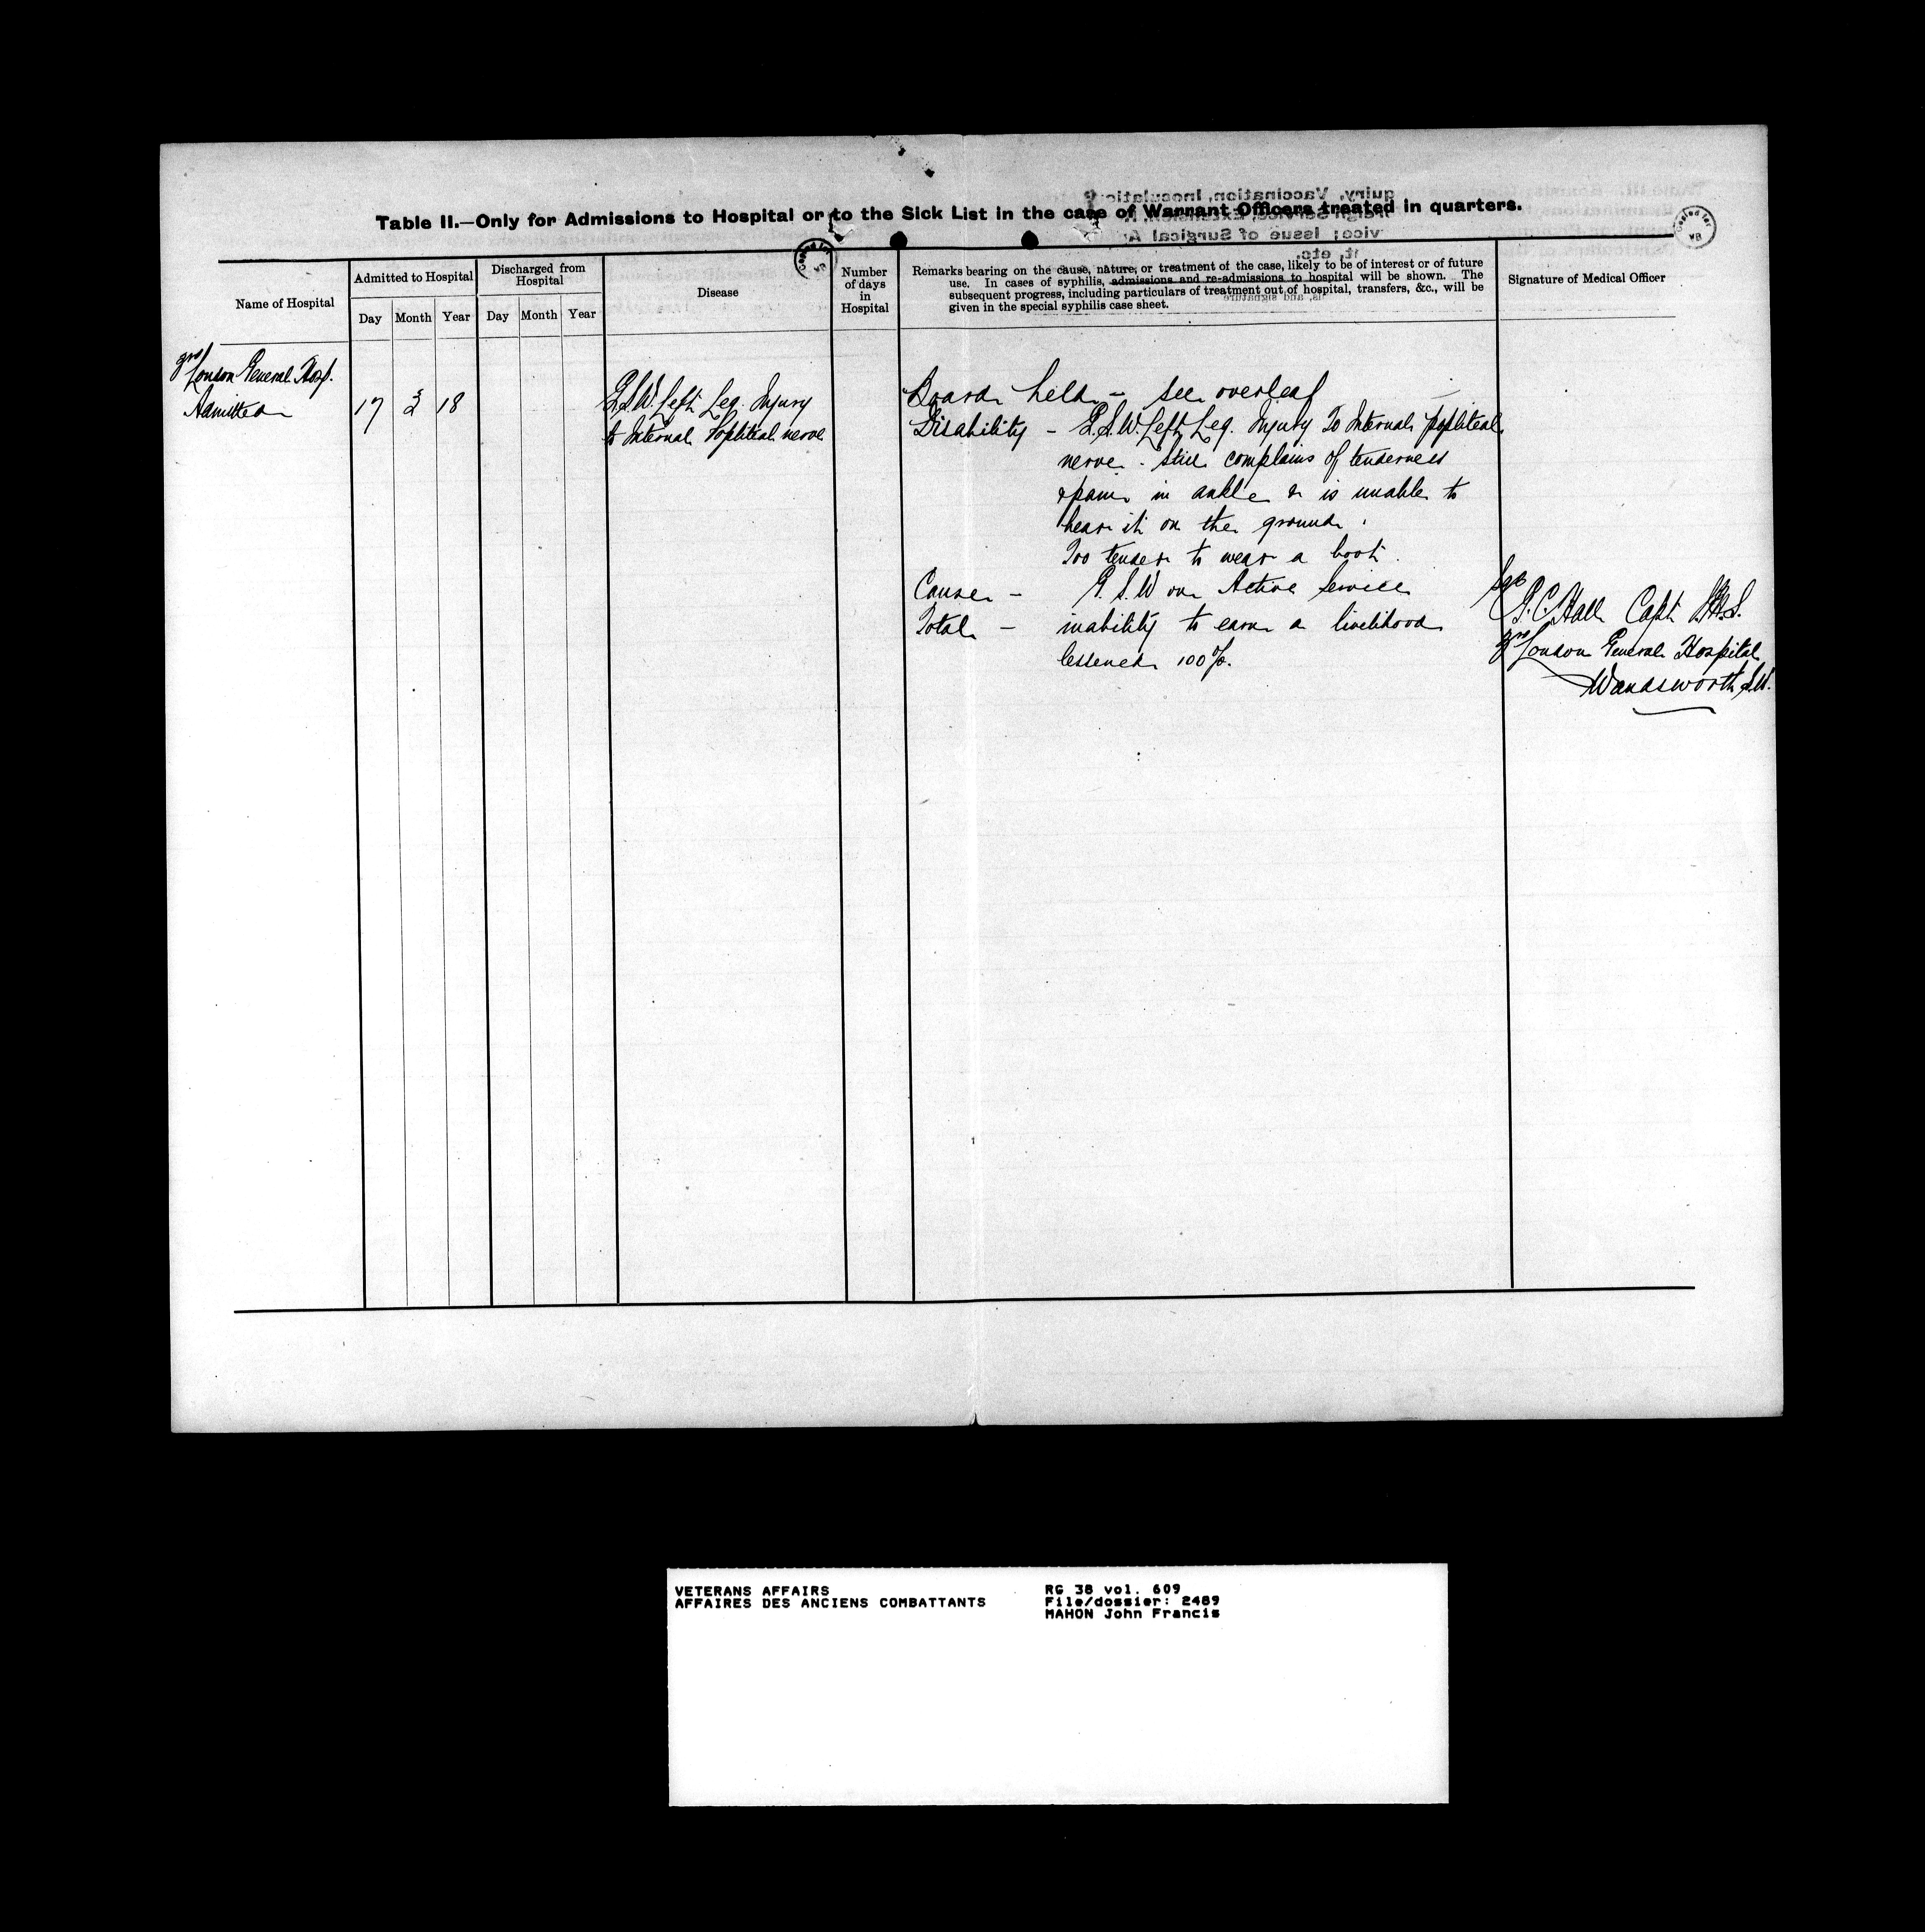 Table II.—Only for Admissions to Hospital or to the Sick List in the case of Warrant Officers treated in quarters.
Name of Hospital
Admitted to Hospital
Day Month Year
Discharged from Hospital
Day Month Year
Disease
Number
of days
in
Hospital
Remarks bearing on the cause, nature, or treatment of the case, likely to be of interest or of future
use. In cases of syphilis, admissions and re-admissions to hospital will be shown. The
subsequent progress, including particulars of treatment out of hospital, transfers, &c., will be
given in the special syphilis case sheet.
Signature of Medical Officer
3rd
London General Hosp.
Admitted 17 3 18
G.S.W. Left Leg. Injury
to Internal Popliteal nerve
Board held - see overleaf
Disability - G.S.W. Left Leg. Injury To Internal popliteal
nerve. Still complains of tenderness
& pain in ankle & is unable to
bear it on the ground.
Too tender to wear a boot.
Cause - G.S.W on Active Service
Total - inability to earn a livelihood
lessened 100%.
Sgd
G.C. Hall Capt
3rd London General Hospital
Wandsworth, S.W.
VETERANS AFFAIRS
AFFAIRES DES ANCIENS COMBATTANTS
RG 38 vol. 609
File/dossier: 2489
MAHON John Francis